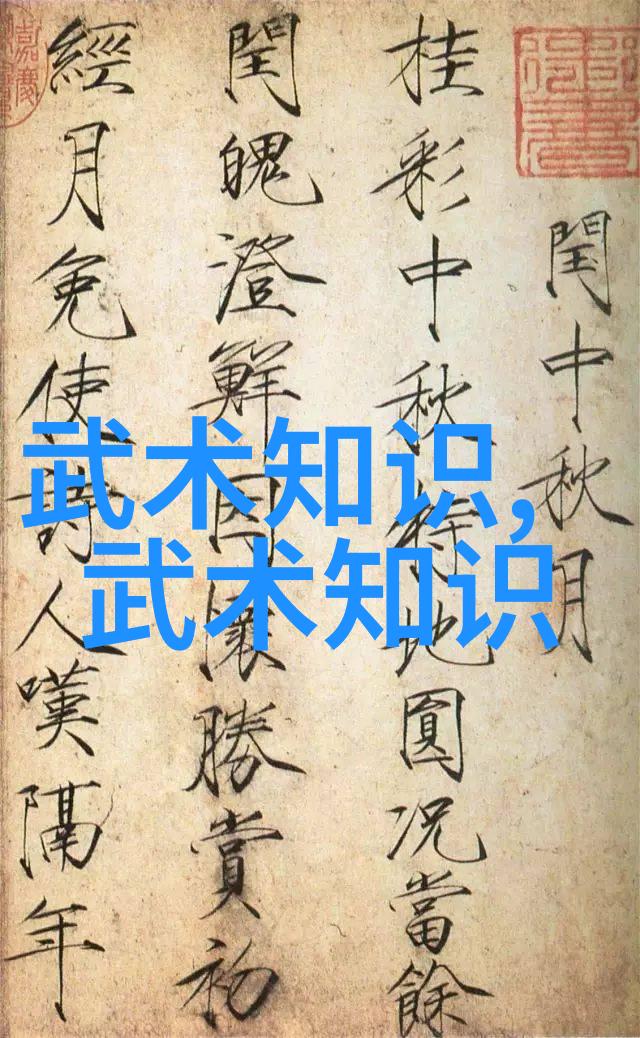 閏中秋月
桂彩中秋特地圓况當餘
閏魄澄鮮因懷勝賞初
經月免使詩人嘆隔年
武术知识,
武术知识